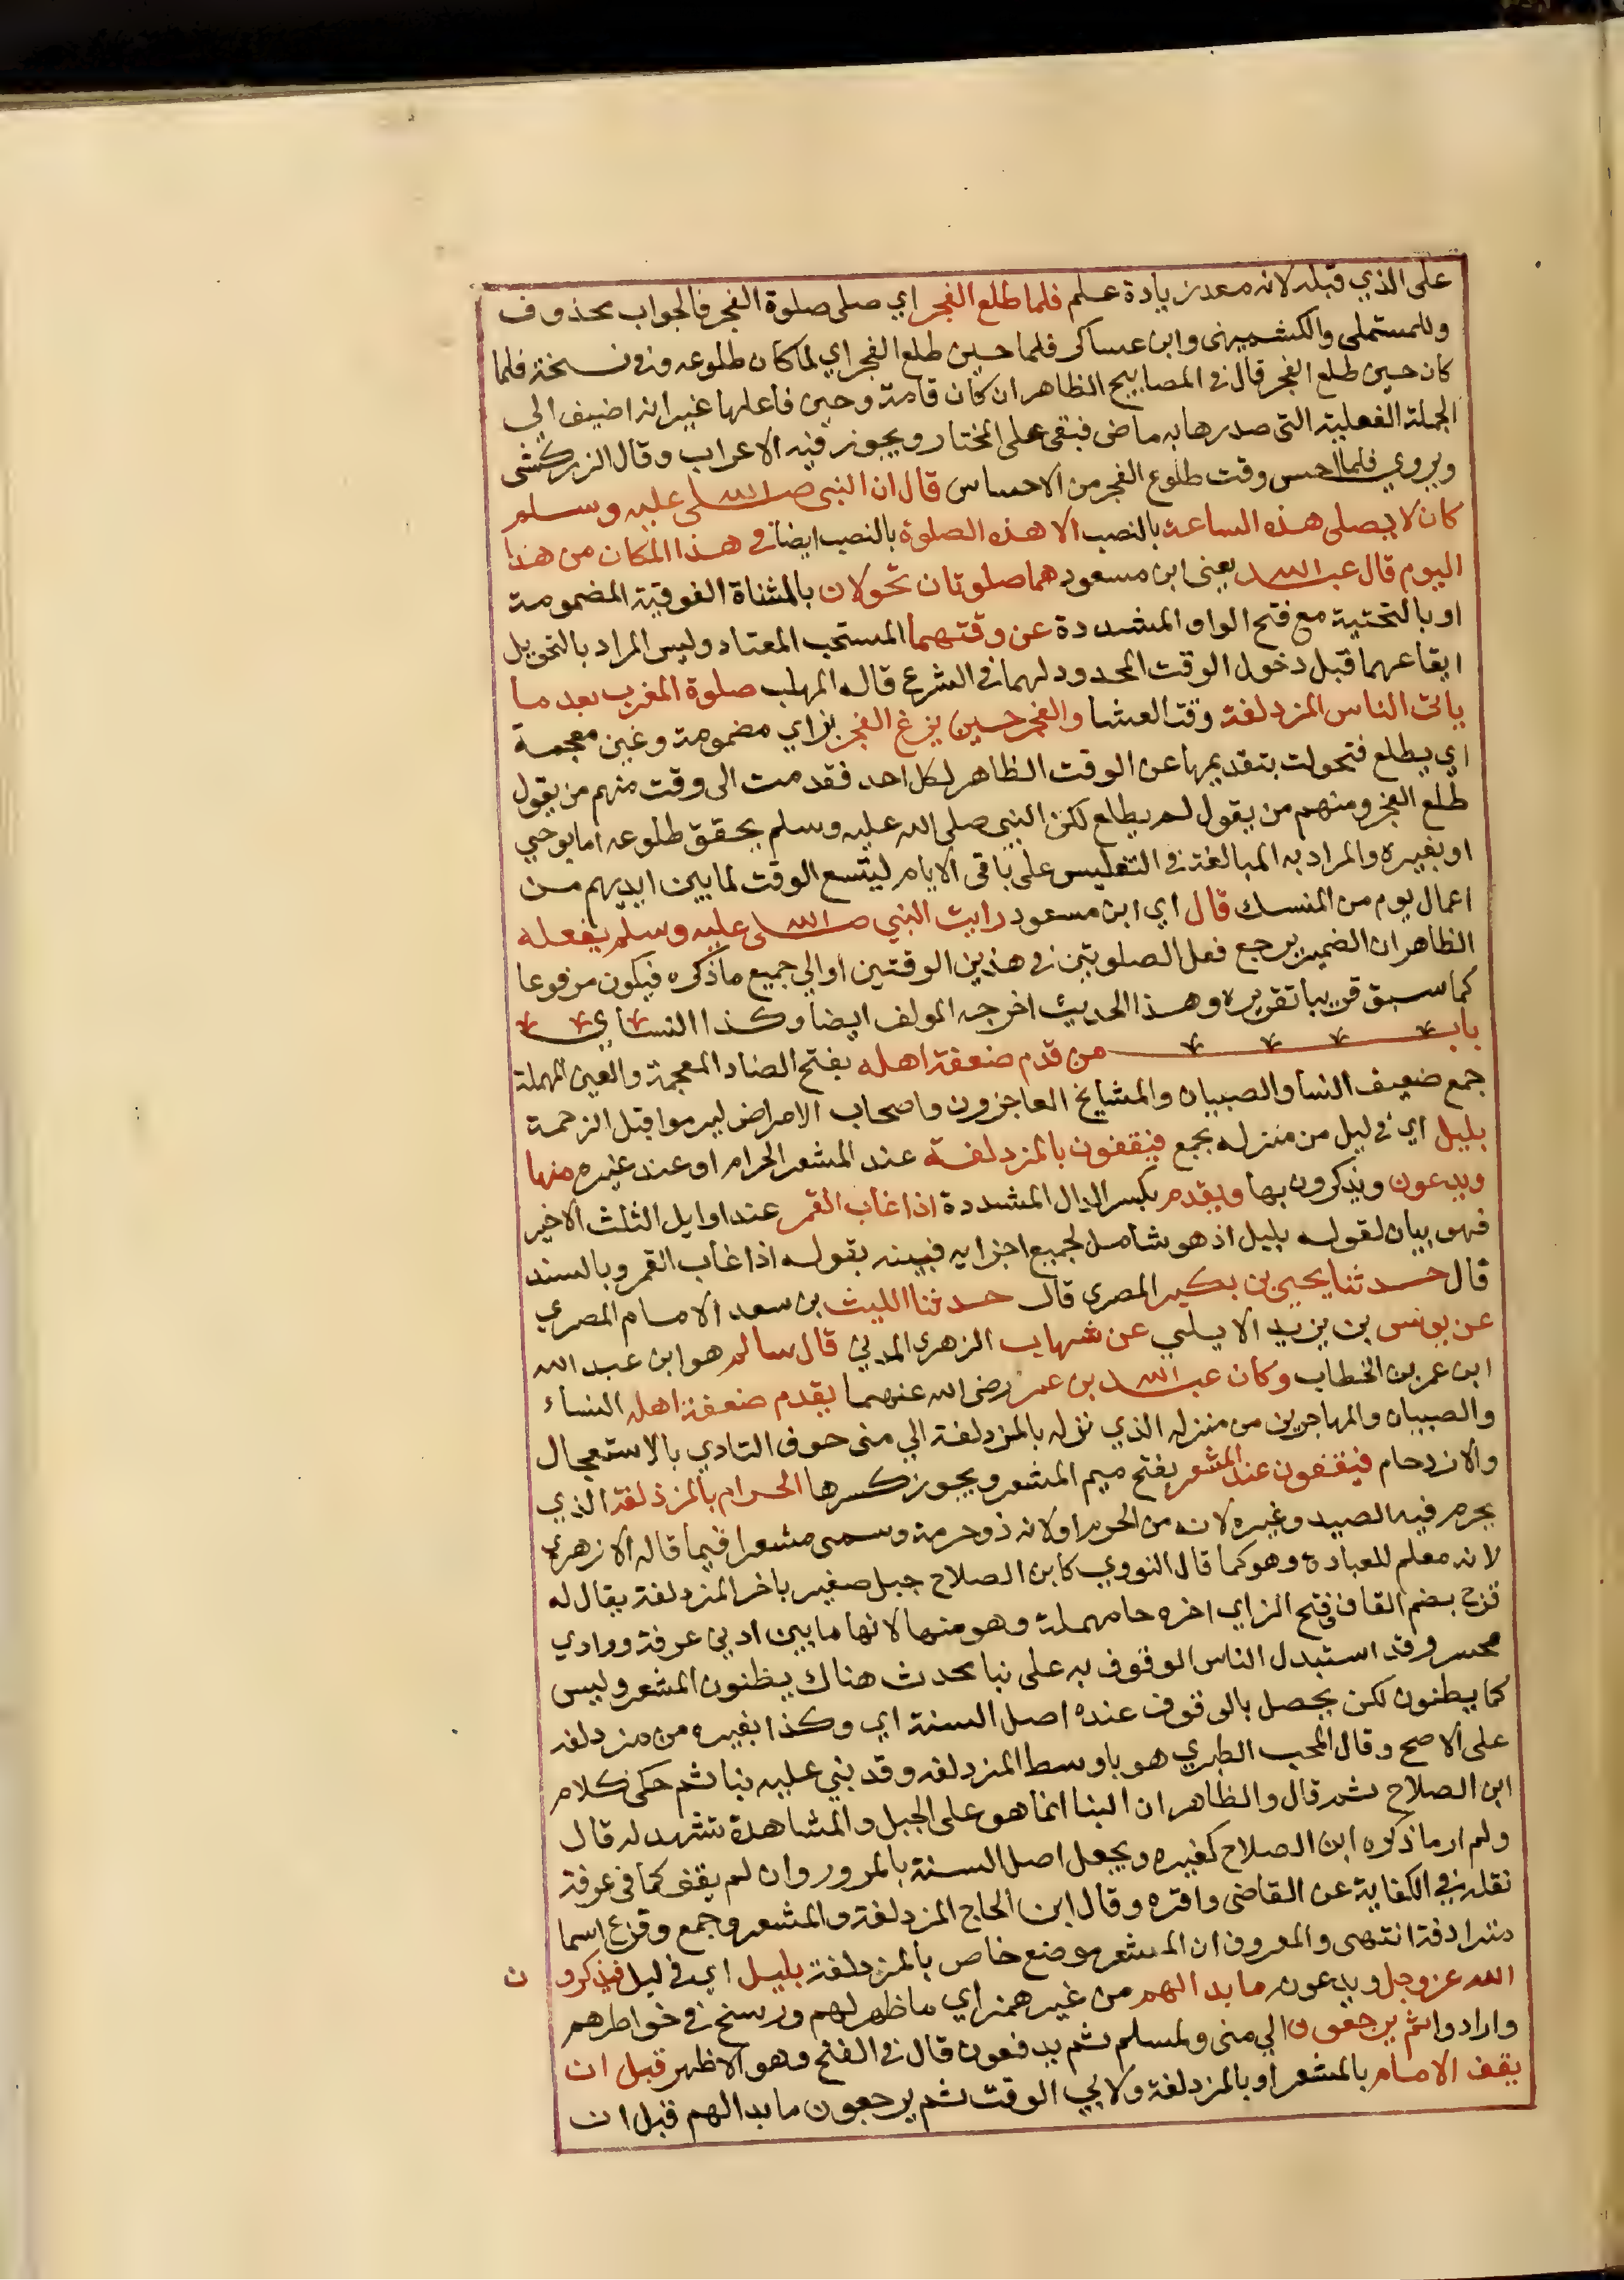 على الذي قبله لانه معه زيادة علم فلما طلع الفجر اي صلى صلوة الفجر فالجواب محذوف
وللمستملى والكشميهنى وابن عساكر فلما حين طلع الفجر اي لما كان طلوعه وفي نسخة فلما
كان حين طلع الفجر قال في المصابيح الظاهر ان كان تامة وحين فاعلها غير انه اضيف الي
الجملة الفعلية التى صدرها به ماض فبنى على المختار ويجوز فيه الاعراب وقال الزركشى
ويروي فلما احس وقت طلوع الفجر من الاحساس قال ان النبى صلى الله عليه وسلم
كان لا يصلى هذه الساعة بالنصب الا هذه الصلوة بالنصب ايضا في هذا المكان من هذا
اليوم قال عبد الله يعنى ابن مسعود هما صلوتان تحولان بالمثناة الفوقية المضمومة
او بالتحتية مع فتح الواو المشددة عن وقتهما المستحب المعتاد وليس المراد بالتحويل
ايقاعهما قبل دخول الوقت المحدود لهما في الشرع قاله المهلب صلوة المغرب بعد ما
ياتى الناس المزدلفة وقت العشا والفجر حين يزغ الفجر بزاي مضمومة وغين معجمة
اي يطلع فتحولت بتقديمها عن الوقت الظاهر لكل احد فقدمت الى وقت منهم من يقول
طلع الفجر ومنهم من يقول لم يطلع لكن النبى صلى الله عليه وسلم تحقق طلوعه اما بوحي
او بغيره والمراد به المبالغة في التغليس على باقى الايام ليتسع الوقت لما بين ايديهم من
اعمال يوم من المنسك قال اي ابن مسعود رايت النبي صلى الله عليه وسلم يفعله
الظاهر ان الضمير يرجع فعل الصلوتين في هذين الوقتين او الي جميع ما ذكره فيكون مرفوعا
كما سبق قريبا تقريره وهذا الحديث اخرجه المولف ايضا وكذا النساي
باب من قدم ضعفة اهله بفتح الضاد المعجمة والعين المهملة
جمع ضعيف النسا والصبيان والمشايخ العاجزون واصحاب الامراض ليرموا قبل الزحمة
بليل اي في ليل من منزله بجمع فيقفون بالمزدلفة عند المشعر الحرام او عند غيره منها
ويدعون ويذكرون بها ويقدم بكسر الدال المشددة اذا غاب القمر عند اوايل الثلث الاخير
فهو بيان لقوله بليل اذ هو شامل لجميع اجزايه فبينه بقوله اذا غاب القمر وبالسند
قال حدثنا يحيى بن بكير المصري قال حدثنا الليث بن سعد الامام المصري
عن يونس بن يزيد الايلي عن شهاب الزهري المدني قال سالم هو ابن عبد الله
ابن عمر بن الخطاب وكان عبد الله بن عمر رضى الله عنهما يقدم ضعفة اهله النساء
والصبيان والمهاجرين من منزله الذي نزله بالمزدلفة الي منى خوف التادي بالاستعجال
والازدحام فيقفون عند المشعر بفتح ميم المشعر ويجوز كسرها الحرام بالمزدلفة الذي
يحرم فيه الصيد وغيره لانه من الحرم او لانه ذو حرمة وسمى مشعرا فيما قاله الازهري
لانه معلم للعبادة وهو كما قال النووي كابن الصلاح جبل صغير باخر المزدلفة يقال له
قزح بضم القاف وفتح الزاي اخره حا مهملة وهو منها لانها ما بين ادني عرفة ووادي
محسر وقد استبدل الناس الوقوف به على نبا محدث هناك يظنون المشعر وليس
كما يظنون لكن يحصل بالوقوف عنده اصل السنة اي وكذا بغيره من مزدلفه
على الاصح وقال المحب الطبري هو باوسط المزدلفه وقد بني عليه بنا ثم حكى كلام
ابن الصلاح ثم قال والظاهر ان البنا انما هو على الجبل والمشاهدة تشهد له قال
ولم ار ما ذكره ابن الصلاح كغيره ويجعل اصل السنة بالمرور وان لم يقف كما في عرفة
نقله في الكفاية عن القاضى واقره وقال ابن الحاج المزدلفة والمشعر وجمع وقزع اسما
متراد فة انتهى والمعروف ان المشعر موضع خاص بالمزدلفة بليل اي في ليل فيذكرون
الله عز وجل ويدعون ما بدا لهم من غير همز اي ما ظهر لهم ورسخ في خواطرهم
وارادوا ثم يرجعون الي منى ولمسلم ثم يدفعون قال في الفتح وهو الاظهر قبل ان
يقف الامام بالمشعر او بالمزدلفة ولابي الوقت ثم يرجعون ما بدا لهم قبل ان